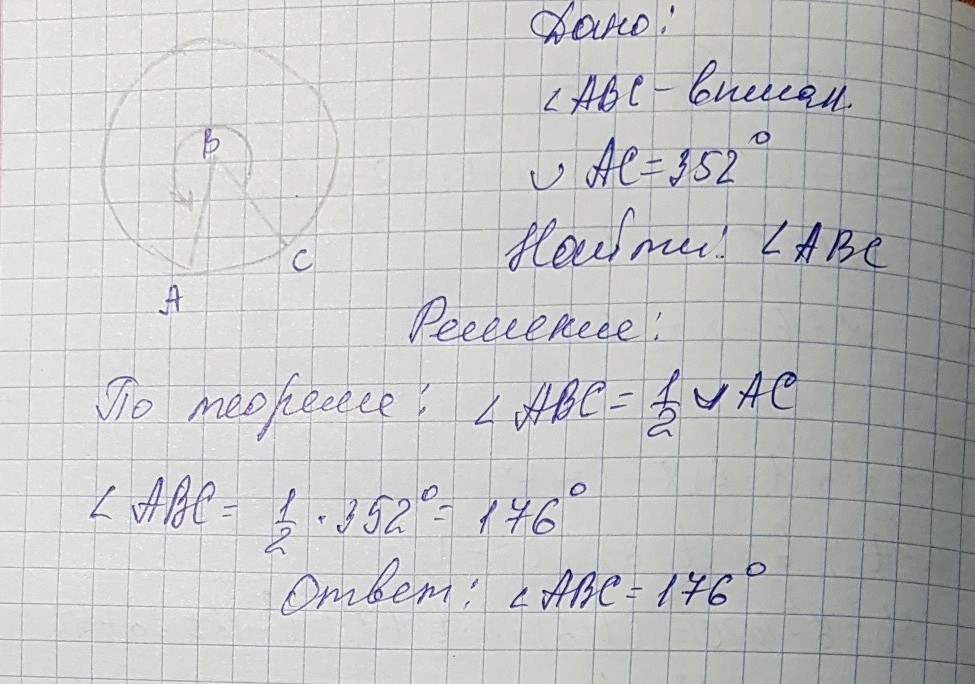 Дано:
∠ABC - впис��н.
◡ AC = 352°
Найти: ∠ABC
B
C
A
Решение:
По теореме: ∠ABC = 1/2 ◡ AC
∠ABC = 1/2 · 352° = 176°
Ответ: ∠ABC = 176°